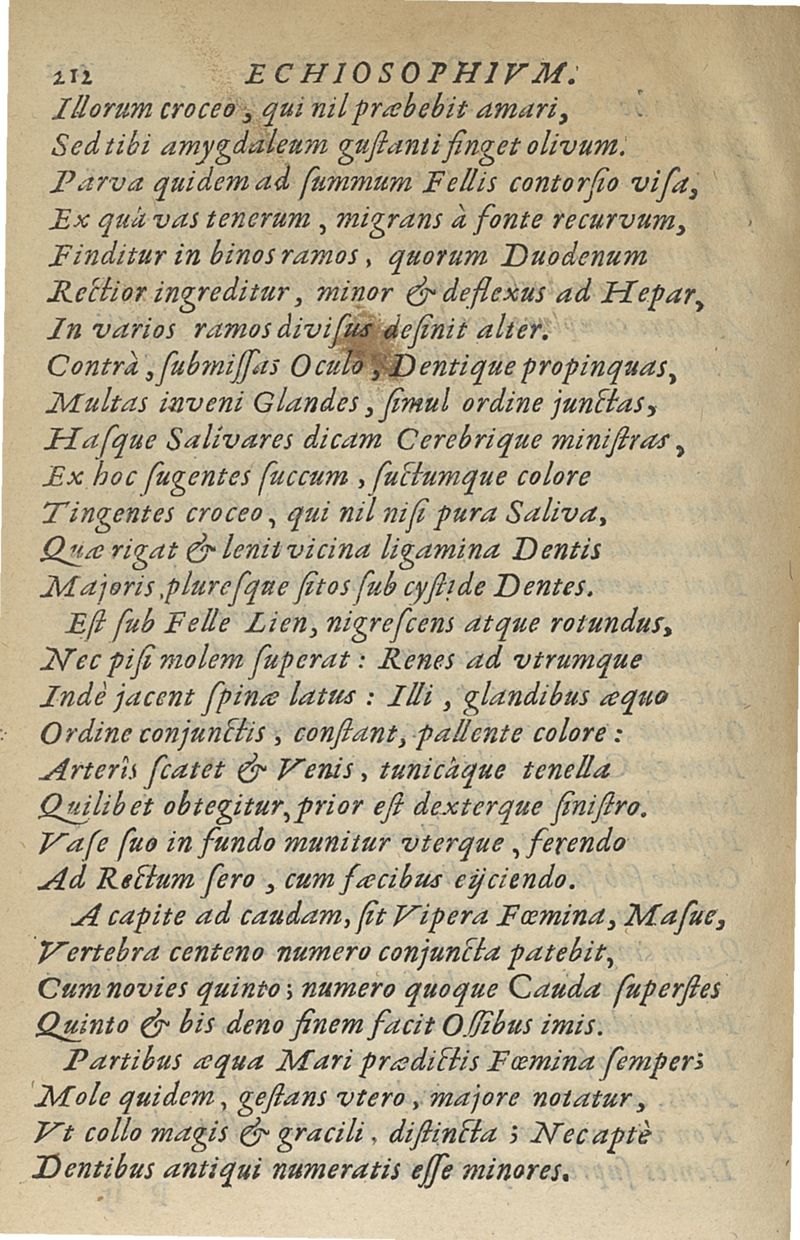 212 ECHIOSOPHIVM.
Illorum croceo, qui nil præbebit amari,
Sed tibi amygdaleum guſtanti finget olivum.
Parva quidem ad ſummum Fellis contorſio viſa,
Ex quâ vas tenerum, migrans à fonte recurvum,
Finditur in binos ramos, quorum Duodenum
Rectior ingreditur, minor & deflexus ad Hepar,
In varios ramos diviſus deſinit alter.
Contrà, ſubmiſſas Oculo, Dentique propinquas,
Multas inveni Glandes, ſimul ordine junctas,
Haſque Salivares dicam Cerebrique miniſtras,
Ex hoc ſugentes ſuccum, ſuctumque colore
Tingentes croceo, qui nil niſi pura Saliva,
Quæ rigat & lenit vicina ligamina Dentis
Majoris, plureſque ſitos ſub cyſtide Dentes.
Eſt ſub Felle Lien, nigreſcens atque rotundus,
Nec piſi molem ſuperat : Renes ad vtrumque
Indè jacent ſpinæ latus : Illi, glandibus æquo
Ordine conjunctis, conſtant, pallente colore :
Arterîs ſcatet & Venis, tunicâque tenella
Quilibet obtegitur, prior eſt dexterque ſiniſtro.
Vaſe ſuo in fundo munitur vterque, ferendo
Ad Rectum ſero, cum fæcibus eijciendo.
A capite ad caudam, ſit Vipera Fœmina, Maſue,
Vertebra centeno numero conjuncta patebit,
Cum novies quinto ; numero quoque Cauda ſuperſtes
Quinto & bis deno finem facit Oſſibus imis.
Partibus æqua Mari prædictis Fœmina ſemper ;
Mole quidem, geſtans vtero, majore notatur,
Vt collo magis & gracili, diſtincta ; Nec aptè
Dentibus antiqui numeratis eſſe minores.